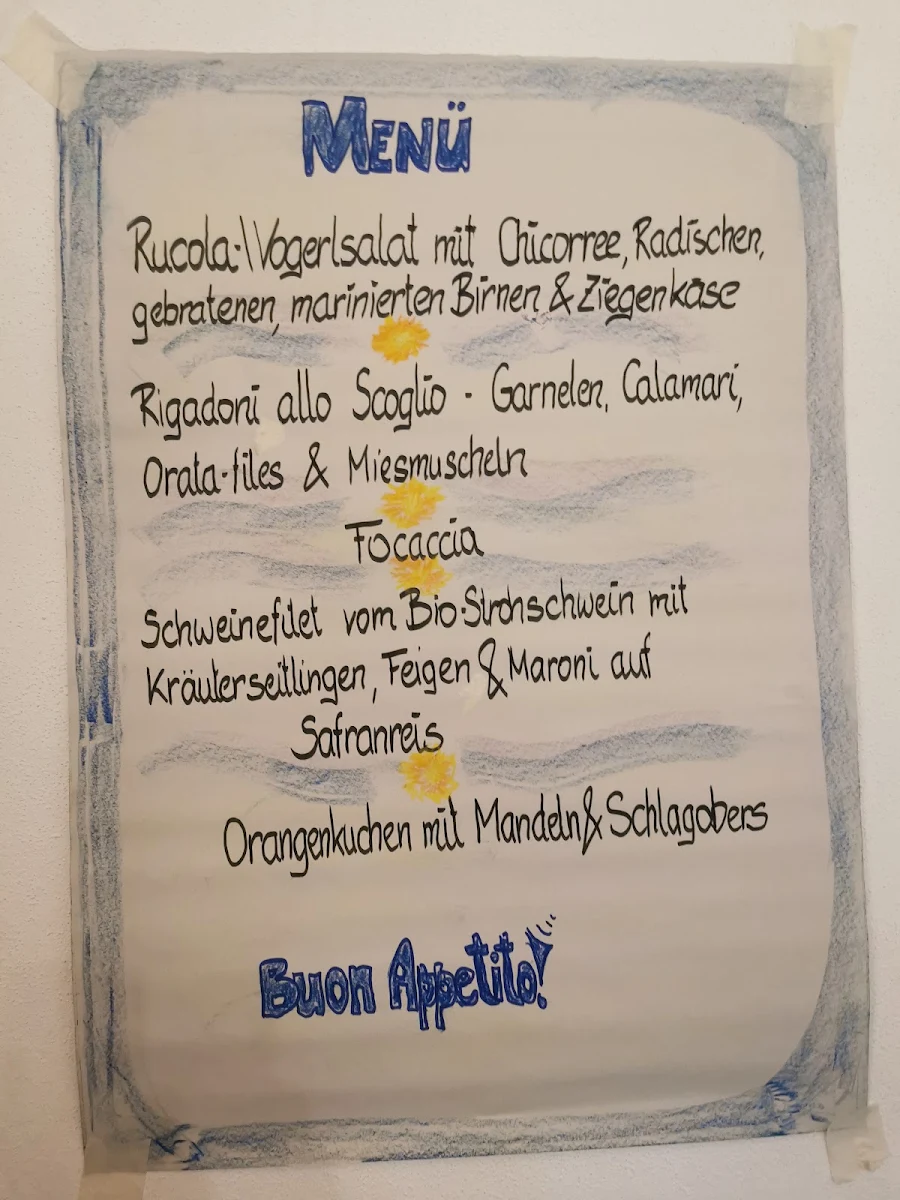 MENÜ
Rucola-\Vogerlsalat mit Chicorree, Radischen,
gebratenen, marinierten Birnen & Ziegenkäse
Rigadoni allo Scoglio - Garnelen, Calamari,
Orata-files & Miesmuscheln
Focaccia
Schweinefilet vom Bio-Strohschwein mit
Kräuterseitlingen, Feigen & Maroni auf
Safranreis
Orangenkuchen mit Mandeln & Schlagobers
Buon Appetito!